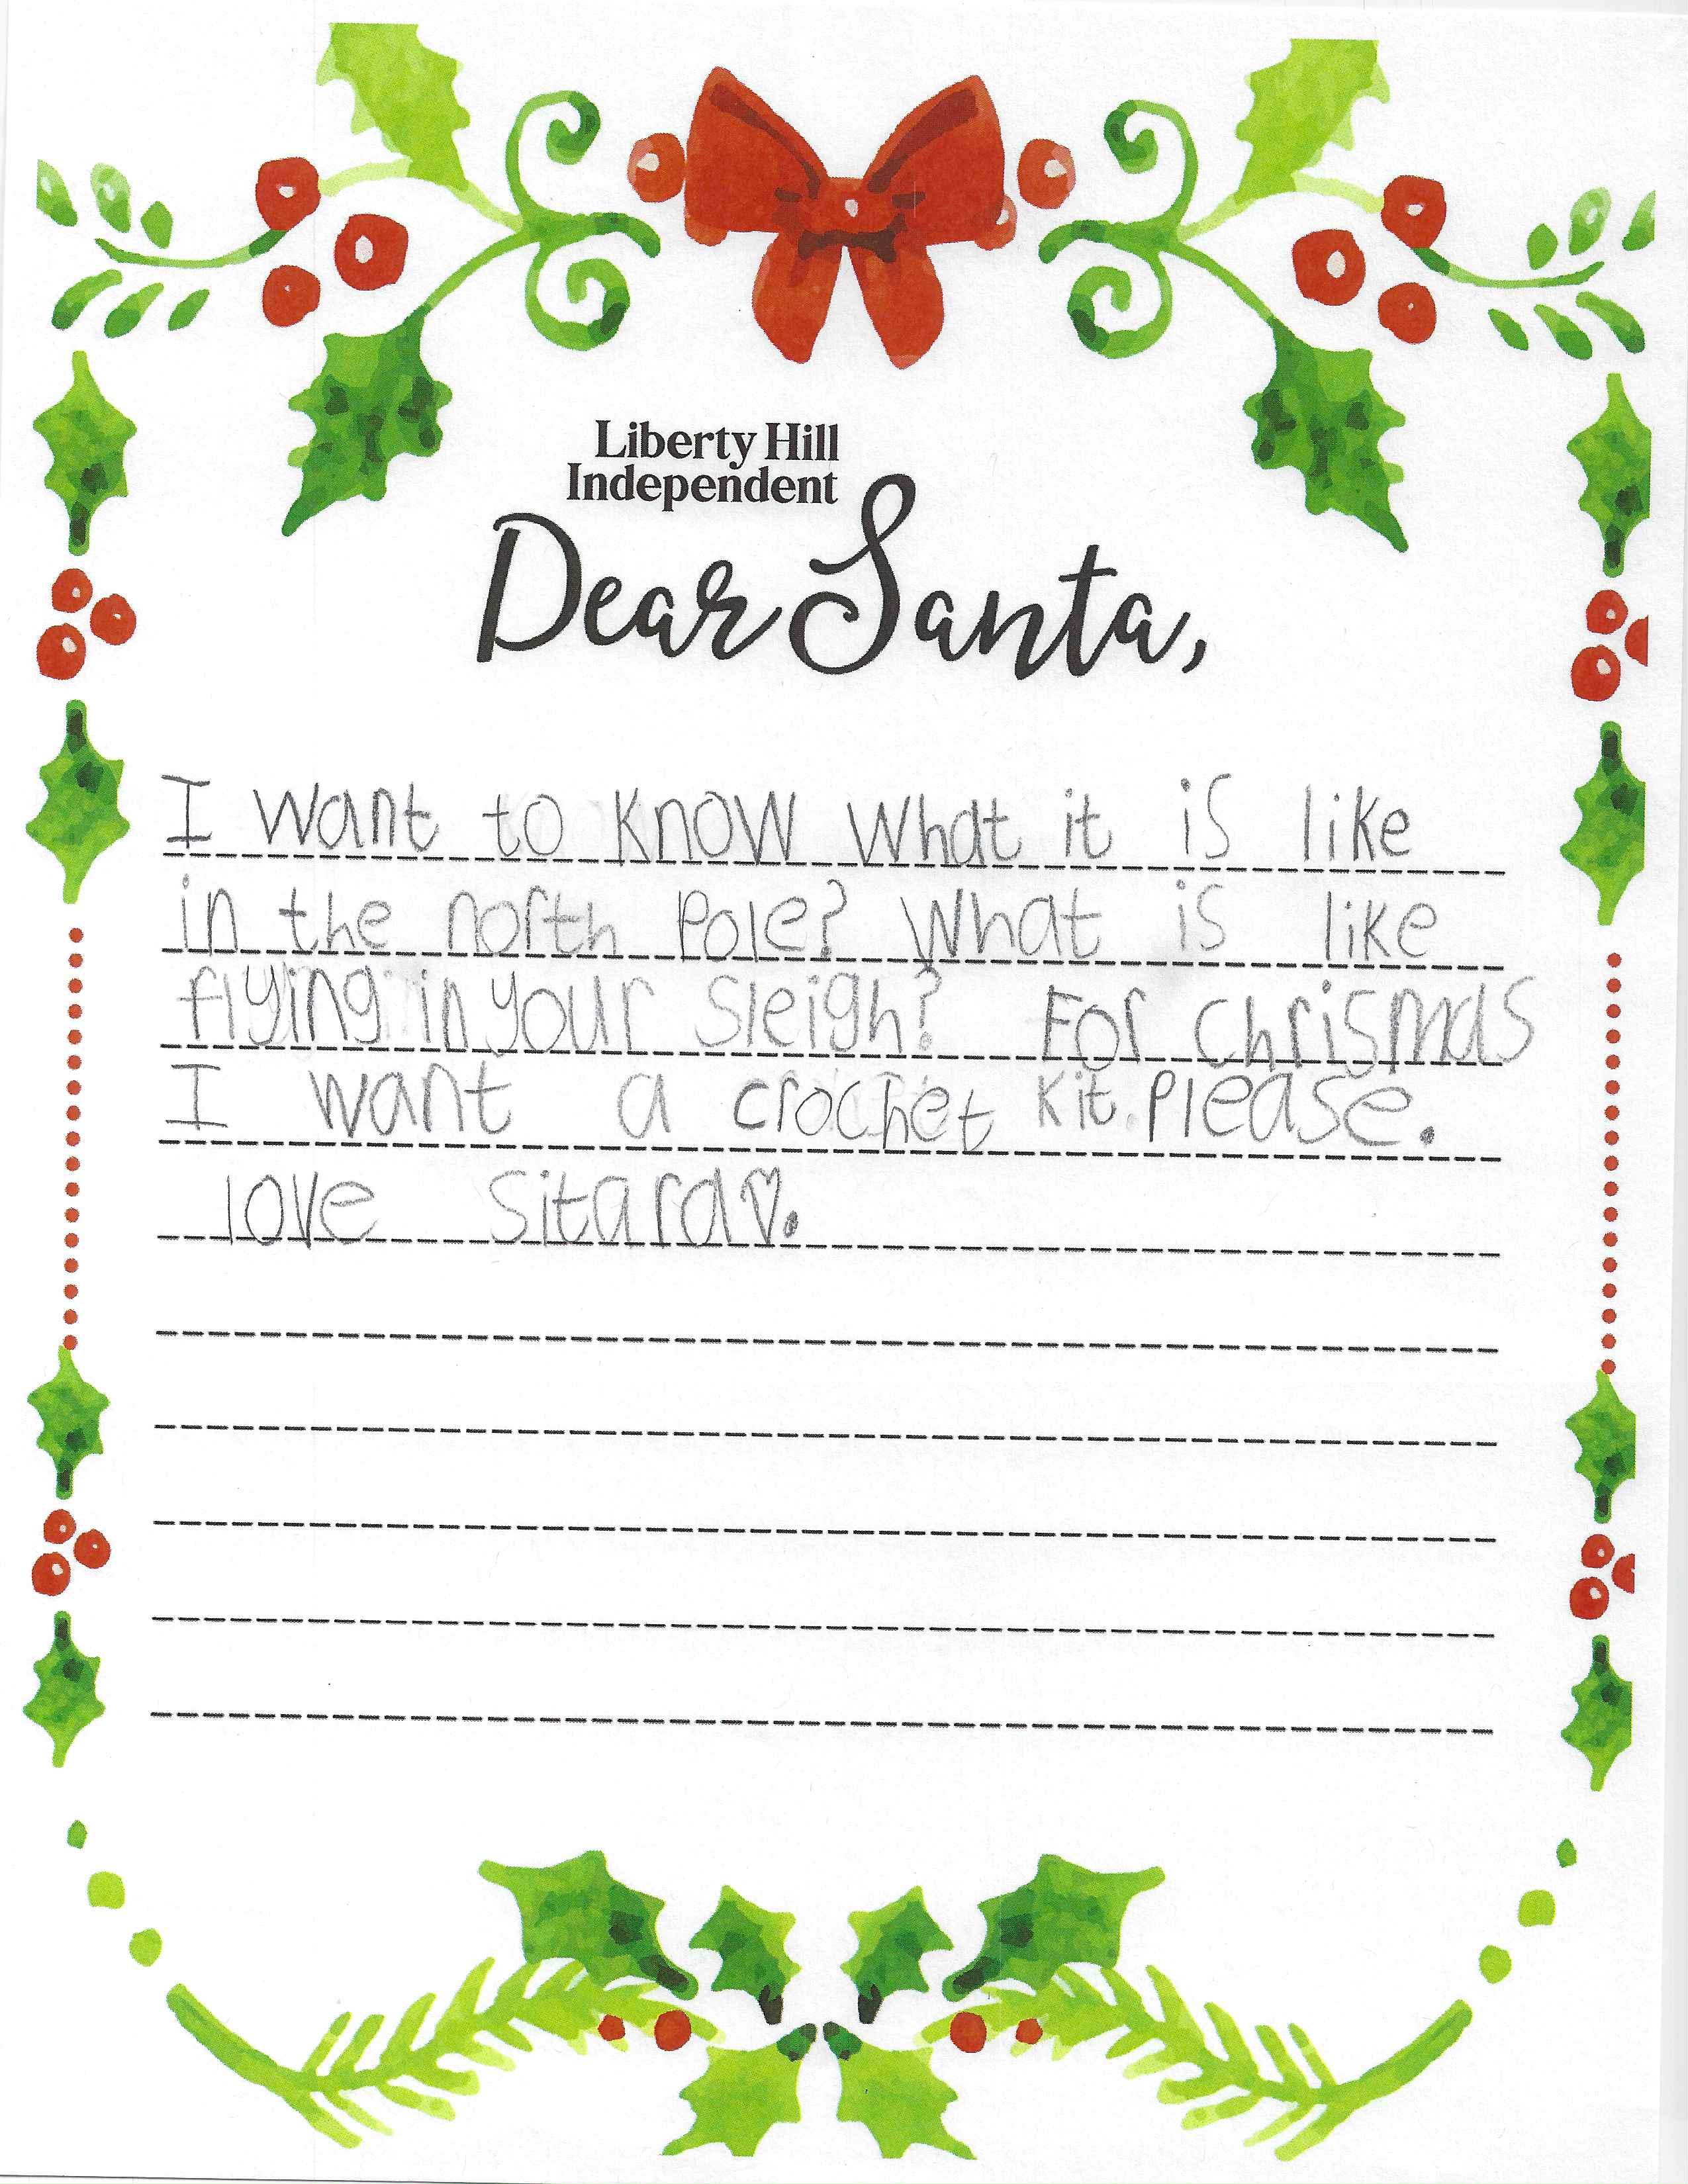 Liberty Hill
Independent
Dear Santa,
I want to know what it is like
in the north Pole? What is like
flying in your sleigh? For Chrismas
I want a crochet kit. Please.
love Sitara♡.